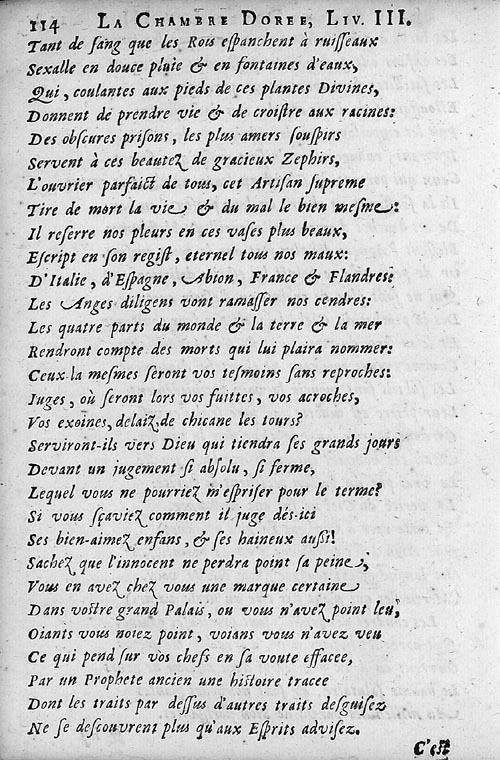 114 LA CHAMBRE DOREE, LIV. III.
Tant de sang que les Rois espanchent à ruisseaux
Sexalle en douce pluie & en fontaines d'eaux,
Qui, coulantes aux pieds de ces plantes Divines,
Donnent de prendre vie & de croistre aux racines:
Des obscures prisons, les plus amers souspirs
Servent à ces beautez de gracieux Zephirs,
L'ouvrier parfaict de tous, cet Artisan supreme
Tire de mort la vie & du mal le bien mesme:
Il reserre nos pleurs en ces vases plus beaux,
Escript en son regist, eternel tous nos maux:
D'Italie, d'Espagne, Abion, France & Flandres:
Les Anges diligens vont ramasser nos cendres:
Les quatre parts du monde & la terre & la mer
Rendront compte des morts qui lui plaira nommer:
Ceux la mesmes seront vos tesmoins sans reproches:
Juges, où seront lors vos fuittes, vos acroches,
Vos exoines, delaiz, de chicane les tours?
Serviront-ils vers Dieu qui tiendra ses grands jours
Devant un jugement si absolu, si ferme,
Lequel vous ne pourriez m'espriser pour le terme?
Si vous sçaviez comment il juge dés-ici
Ses bien-aimez enfans, & ses haineux aussi!
Sachez que l'innocent ne perdra point sa peine,
Vous en avez chez vous une marque certaine
Dans vostre grand Palais, ou vous n'avez point leu,
Oiants vous noiez point, voians vous n'avez veu
Ce qui pend sur vos chefs en sa voute effacee,
Par un Prophete ancien une histoire tracee
Dont les traits par dessus d'autres traits desguisez
Ne se descouvrent plus qu'aux Esprits advisez.
C'est